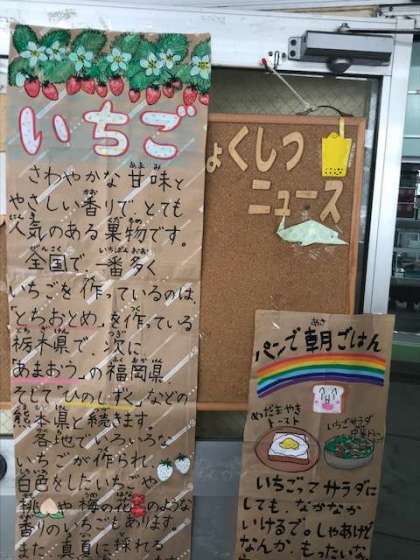 いちご
さわやかな甘味と
やさしい香りで、とても
人気のある果物です。
全国で一番多く
いちごを作っているのは、
「とちおとめ」を作っている
栃木県で、次に
「あまおう」の福岡県
そして「ひのしずく」などの
熊本県と続きます。
各地でいろいろな
いちごが作られ、
白色をしたいちごや
桃や梅の花のような
香りのいちごもあります。
また、真夏に採れる
ょくしつ
ニュース
パンで朝ごはん
めだまやき
トースト
いちごサラダ
いちごってサラダに
しても、なかなか
いけるで。しゃあけど
なんか もったいな